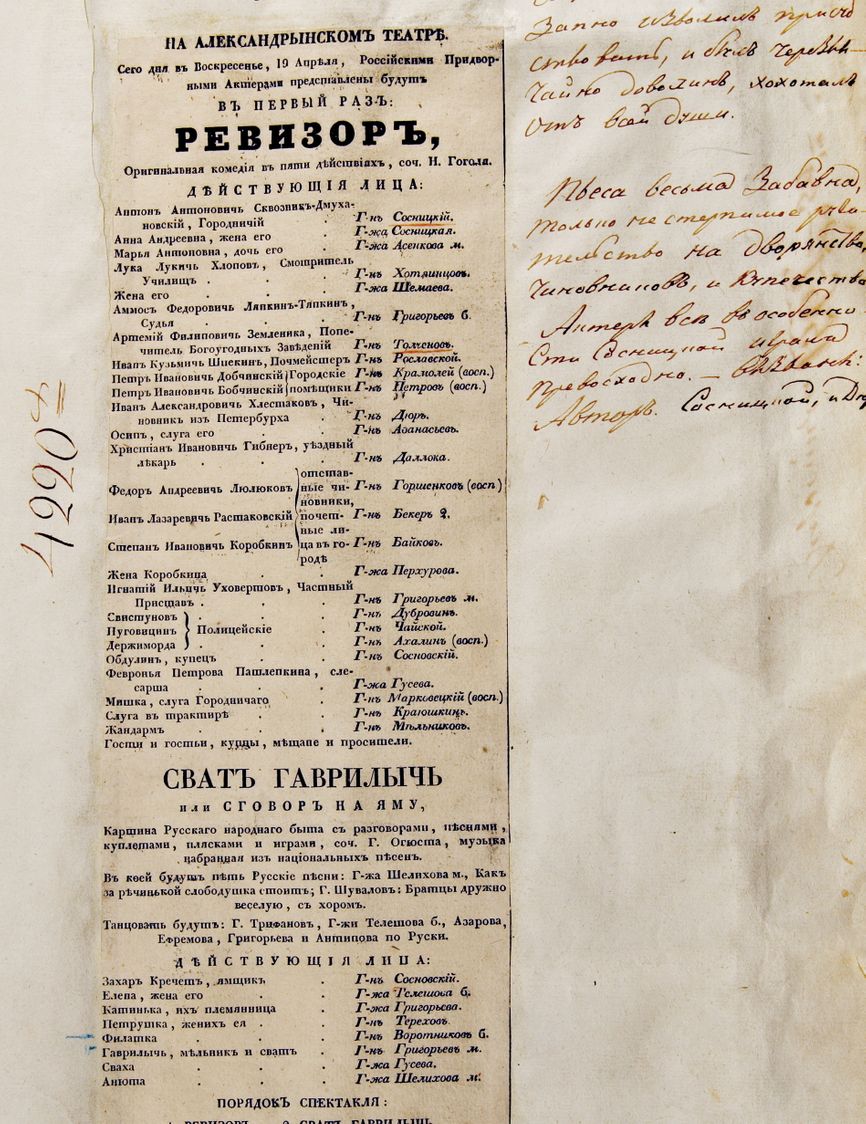 НА АЛЕКСАНДРЫНСКОМЪ ТЕАТРѢ.
Сего дня въ Воскресенье, 19 Апрѣля, Россійскими Придвор-
ными Актерами представлены будутъ
ВЪ ПЕРВЫЙ РАЗЪ:
РЕВИЗОРЪ,
Оригинальная комедія въ пяти дѣйствіяхъ, соч. Н. Гоголя.
ДѢЙСТВУЮЩІЯ ЛИЦА:
Антонъ Антоновичь Сквозникъ-Дмуха-
новскій, Городничій . Г-нъ Сосницкій.
Анна Андреевна, жена его . Г-жа Сосницкая.
Марья Антоновна, дочь его . Г-жа Асенкова м.
Лука Лукичь Хлоповъ, Смотритель
Училищъ . . . Г-нъ Хотяинцовъ.
Жена его . . . Г-жа Шемаева.
Аммосъ Федоровичь Ляпкинъ-Тяпкинъ,
Судья . . . Г-нъ Григорьевъ б.
Артемій Филиповичь Земленика, Попе-
читель Богоугодныхъ Заведеній Г-нъ Толченовъ.
Иванъ Кузьмичь Шпекинъ, Почмейстеръ Г-нъ Рославской.
Петръ Ивановичь Добчинскій Городскіе Г-нъ Крамолей (восп.)
Петръ Ивановичь Бобчинскій помѣщики Г-нъ Петровъ (восп.)
Иванъ Александровичь Хлестаковъ, Чи-
новникъ изъ Петербурха . Г-нъ Дюръ.
Осипъ, слуга его . . Г-нъ Аѳанасьевъ.
Христіанъ Ивановичь Гибнеръ, уѣздный
лѣкарь . . . Г-нъ Даллока.
отстав-
Федоръ Андреевичь Люлюковъ ные чи- Г-нъ Горшенковъ (восп)
новники,
Иванъ Лазаревичь Растаковскій почет- Г-нъ Бекеръ 2.
ные ли-
Степанъ Ивановичь Коробкинъ ца въ го- Г-нъ Байковъ.
родѣ
Жена Коробкина . . Г-жа Перхурова.
Игнатій Ильичь Уховертовъ, Частный
Приставъ . . . Г-нъ Григорьевъ м.
Свистуновъ . . Г-нъ Дубровинъ.
Пуговицинъ Полицейскіе . Г-нъ Чайской.
Держиморда . . Г-нъ Ахалинъ (восп.)
Обдулинъ, купецъ . . Г-нъ Сосновскій.
Февронья Петрова Пашлепкина, сле-
сарша . . . Г-жа Гусева.
Мишка, слуга Городничаго . Г-нъ Марковецкій (восп.)
Слуга въ трактирѣ . . Г-нъ Краюшкинъ.
Жандармъ . . . Г-нъ Мѣльниковъ.
Гости и гостьи, купцы, мѣщане и просители.
СВАТЪ ГАВРИЛЫЧЬ
или СГОВОРЪ НА ЯМУ,
Картина Русскаго народнаго быта съ разговорами, пѣснями,
куплетами, плясками и играми, соч. Г. Огюста, музыка
набранная изъ національныхъ пѣсенъ.
Въ коей будутъ пѣть Русскіе пѣсни: Г-жа Шелихова м., Какъ
за рѣчинькой слободушка стоитъ; Г. Шуваловъ: Братцы дружно
веселую, съ хоромъ.
Танцовать будутъ: Г. Трифановъ, Г-жи Телешова б., Азарова,
Ефремова, Григорьева и Антипова по Руски.
ДѢЙСТВУЮЩІЯ ЛИЦА:
Захаръ Кречетъ, ямщикъ . Г-нъ Сосновскій.
Елена, жена его . . Г-жа Телешова б.
Катинька, ихъ племянница . Г-жа Григорьева.
Петрушка, женихъ ея . . Г-нъ Тереховъ.
Филатка . . . Г-нъ Воротниковъ б.
Гаврилычь, мѣльникъ и сватъ . Г-нъ Григорьевъ м.
Сваха . . . Г-жа Гусева.
Анюта . . . Г-жа Шелихова м.
ПОРЯДОКЪ СПЕКТАКЛЯ:
1 РЕВИЗОРЪ. 2 СВАТЪ ГАВРИЛЫЧЬ.
4220
запно изволилъ присут
ствовать, и былъ чрезвы-
чайно доволенъ, хохоталъ
отъ всей души.
Пьеса весьма забавна,
только нестерпимое руга
тельство на дворянство,
чиновниковъ, и купечество
Актеры всѣ въ особенно
сти Сосницкой играли
превосходно. – вызваны:
Авторъ. Сосницкой, и Дюр